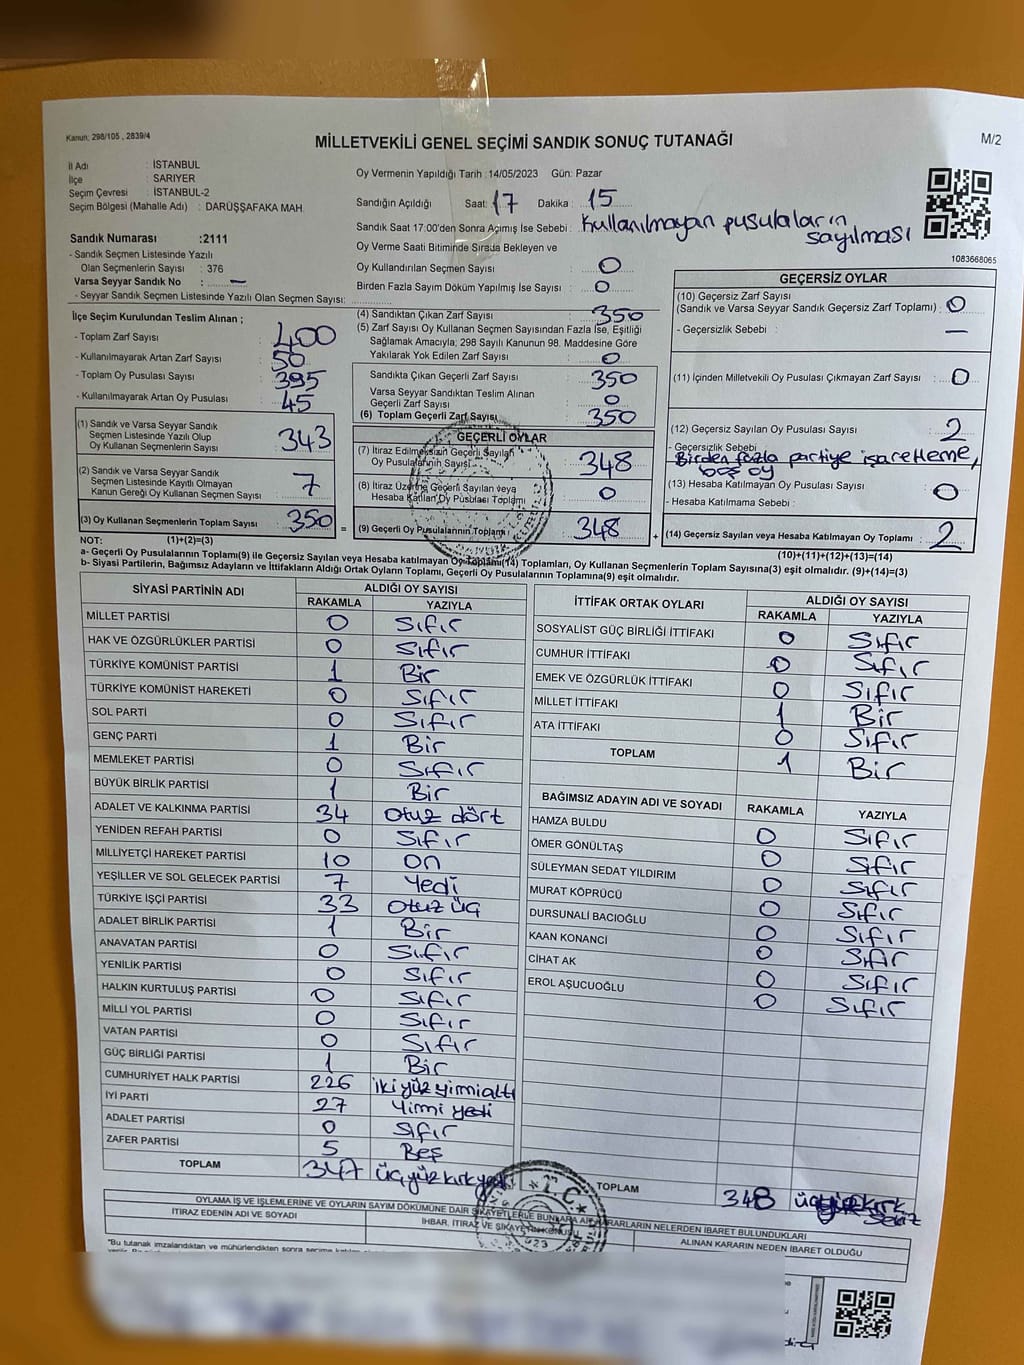 Kanun: 298/105 , 2839/4
MİLLETVEKİLİ GENEL SEÇİMİ SANDIK SONUÇ TUTANAĞI
M/2
İl Adı : İSTANBUL
İlçe : SARIYER
Seçim Çevresi : İSTANBUL-2
Seçim Bölgesi (Mahalle Adı) : DARÜŞŞAFAKA MAH.
Oy Vermenin Yapıldığı Tarih :14/05/2023 Gün: Pazar
Sandığın Açıldığı Saat: 17 Dakika : 15
Sandık Saat 17:00'den Sonra Açımış İse Sebebi : Kullanılmayan pusulaların sayılması
Oy Verme Saati Bitiminde Sırada Bekleyen ve
Oy Kullandırılan Seçmen Sayısı : 0
Birden Fazla Sayım Döküm Yapılmış İse Sayısı : 0
1083668065
Sandık Numarası :2111
- Sandık Seçmen Listesinde Yazılı
Olan Seçmenlerin Sayısı : 376
Varsa Seyyar Sandık No : —
- Seyyar Sandık Seçmen Listesinde Yazılı Olan Seçmen Sayısı:
İlçe Seçim Kurulundan Teslim Alınan ;
- Toplam Zarf Sayısı : 400
- Kullanılmayarak Artan Zarf Sayısı : 50
- Toplam Oy Pusulası Sayısı : 395
- Kullanılmayarak Artan Oy Pusulası : 45
(1) Sandık ve Varsa Seyyar Sandık
Seçmen Listesinde Yazılı Olup
Oy Kullanan Seçmenlerin Sayısı : 343
(2) Sandık ve Varsa Seyyar Sandık
Seçmen Listesinde Kayıtlı Olmayan
Kanun Gereği Oy Kullanan Seçmen Sayısı : 7
(3) Oy Kullanan Seçmenlerin Toplam Sayısı : 350
(4) Sandıktan Çıkan Zarf Sayısı : 350
(5) Zarf Sayısı Oy Kullanan Seçmen Sayısından Fazla İse, Eşitliği
Sağlamak Amacıyla; 298 Sayılı Kanunun 98. Maddesine Göre
Yakılarak Yok Edilen Zarf Sayısı : 0
Sandıkta Çıkan Geçerli Zarf Sayısı : 350
Varsa Seyyar Sandıktan Teslim Alınan
Geçerli Zarf Sayısı : 0
(6) Toplam Geçerli Zarf Sayısı : 350
GEÇERLİ OYLAR
(7) İtiraz Edilmeksizin Geçerli Sayılan
Oy Pusulalarının Sayısı : 348
(8) İtiraz Üzerine Geçerli Sayılan veya
Hesaba Katılan Oy Pusulası Toplamı : 0
= (9) Geçerli Oy Pusulalarının Toplamı : 348 +
GEÇERSİZ OYLAR
(10) Geçersiz Zarf Sayısı
(Sandık ve Varsa Seyyar Sandık Geçersiz Zarf Toplamı) : 0
- Geçersizlik Sebebi : —
(11) İçinden Milletvekili Oy Pusulası Çıkmayan Zarf Sayısı : 0
(12) Geçersiz Sayılan Oy Pusulası Sayısı : 2
- Geçersizlik Sebebi :
Birden fazla partiye işaretleme,
boş oy
(13) Hesaba Katılmayan Oy Pusulası Sayısı : 0
- Hesaba Katılmama Sebebi :
(14) Geçersiz Sayılan veya Hesaba Katılmayan Oy Toplamı : 2
NOT: (1)+(2)=(3)
(10)+(11)+(12)+(13)=(14)
a- Geçerli Oy Pusulalarının Toplamı(9) ile Geçersiz Sayılan veya Hesaba katılmayan Oy Toplamı(14) Toplamları, Oy Kullanan Seçmenlerin Toplam Sayısına(3) eşit olmalıdır. (9)+(14)=(3)
b- Siyasi Partilerin, Bağımsız Adayların ve İttifakların Aldığı Ortak Oyların Toplamı, Geçerli Oy Pusulalarının Toplamına(9) eşit olmalıdır.
SİYASİ PARTİNİN ADI ALDIĞI OY SAYISI
RAKAMLA YAZIYLA
MİLLET PARTİSİ 0 Sıfır
HAK VE ÖZGÜRLÜKLER PARTİSİ 0 Sıfır
TÜRKİYE KOMÜNİST PARTİSİ 1 Bir
TÜRKİYE KOMÜNİST HAREKETİ 0 Sıfır
SOL PARTİ 0 Sıfır
GENÇ PARTİ 1 Bir
MEMLEKET PARTİSİ 0 Sıfır
BÜYÜK BİRLİK PARTİSİ 1 Bir
ADALET VE KALKINMA PARTİSİ 34 otuz dört
YENİDEN REFAH PARTİSİ 0 Sıfır
MİLLİYETÇİ HAREKET PARTİSİ 10 on
YEŞİLLER VE SOL GELECEK PARTİSİ 7 Yedi
TÜRKİYE İŞÇİ PARTİSİ 33 otuz üç
ADALET BİRLİK PARTİSİ 1 Bir
ANAVATAN PARTİSİ 0 Sıfır
YENİLİK PARTİSİ 0 Sıfır
HALKIN KURTULUŞ PARTİSİ 0 Sıfır
MİLLİ YOL PARTİSİ 0 Sıfır
VATAN PARTİSİ 0 Sıfır
GÜÇ BİRLİĞİ PARTİSİ 1 Bir
CUMHURİYET HALK PARTİSİ 226 iki yüz yirmialtı
İYİ PARTİ 27 Yirmi yedi
ADALET PARTİSİ 0 Sıfır
ZAFER PARTİSİ 5 Beş
TOPLAM 347 üç yüz kırk yedi
İTTİFAK ORTAK OYLARI ALDIĞI OY SAYISI
RAKAMLA YAZIYLA
SOSYALİST GÜÇ BİRLİĞİ İTTİFAKI 0 Sıfır
CUMHUR İTTİFAKI 0 Sıfır
EMEK VE ÖZGÜRLÜK İTTİFAKI 0 Sıfır
MİLLET İTTİFAKI 1 Bir
ATA İTTİFAKI 0 Sıfır
TOPLAM 1 Bir
BAĞIMSIZ ADAYIN ADI VE SOYADI RAKAMLA YAZIYLA
HAMZA BULDU 0 Sıfır
ÖMER GÖNÜLTAŞ 0 Sıfır
SÜLEYMAN SEDAT YILDIRIM 0 Sıfır
MURAT KÖPRÜCÜ 0 Sıfır
DURSUNALİ BACIOĞLU 0 Sıfır
KAAN KONANCİ 0 Sıfır
CİHAT AK 0 Sıfır
EROL AŞUCUOĞLU 0 Sıfır
TOPLAM 348 üçyüz kırk sekiz
T.C.
OYLAMA İŞ VE İŞLEMLERİNE VE OYLARIN SAYIM DÖKÜMÜNE DAİR ŞİKAYETLERLE BUNLARA AİT KARARLARIN NELERDEN İBARET BULUNDUKLARI
İTİRAZ EDENİN ADI VE SOYADI
İHBAR, İTİRAZ VE ŞİKAYETİN KONUSU
ALINAN KARARIN NEDEN İBARET OLDUĞU
"Bu tutanak imzalandıktan ve mühürlendikten sonra